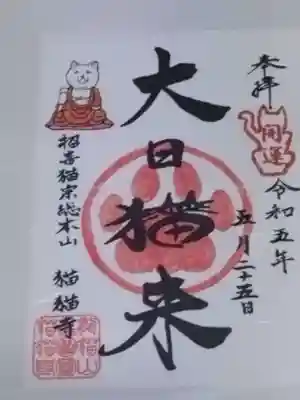 奉拝
開運
令和五年
五月二十五日
大日猫来
招喜猫宗総本山 猫猫寺